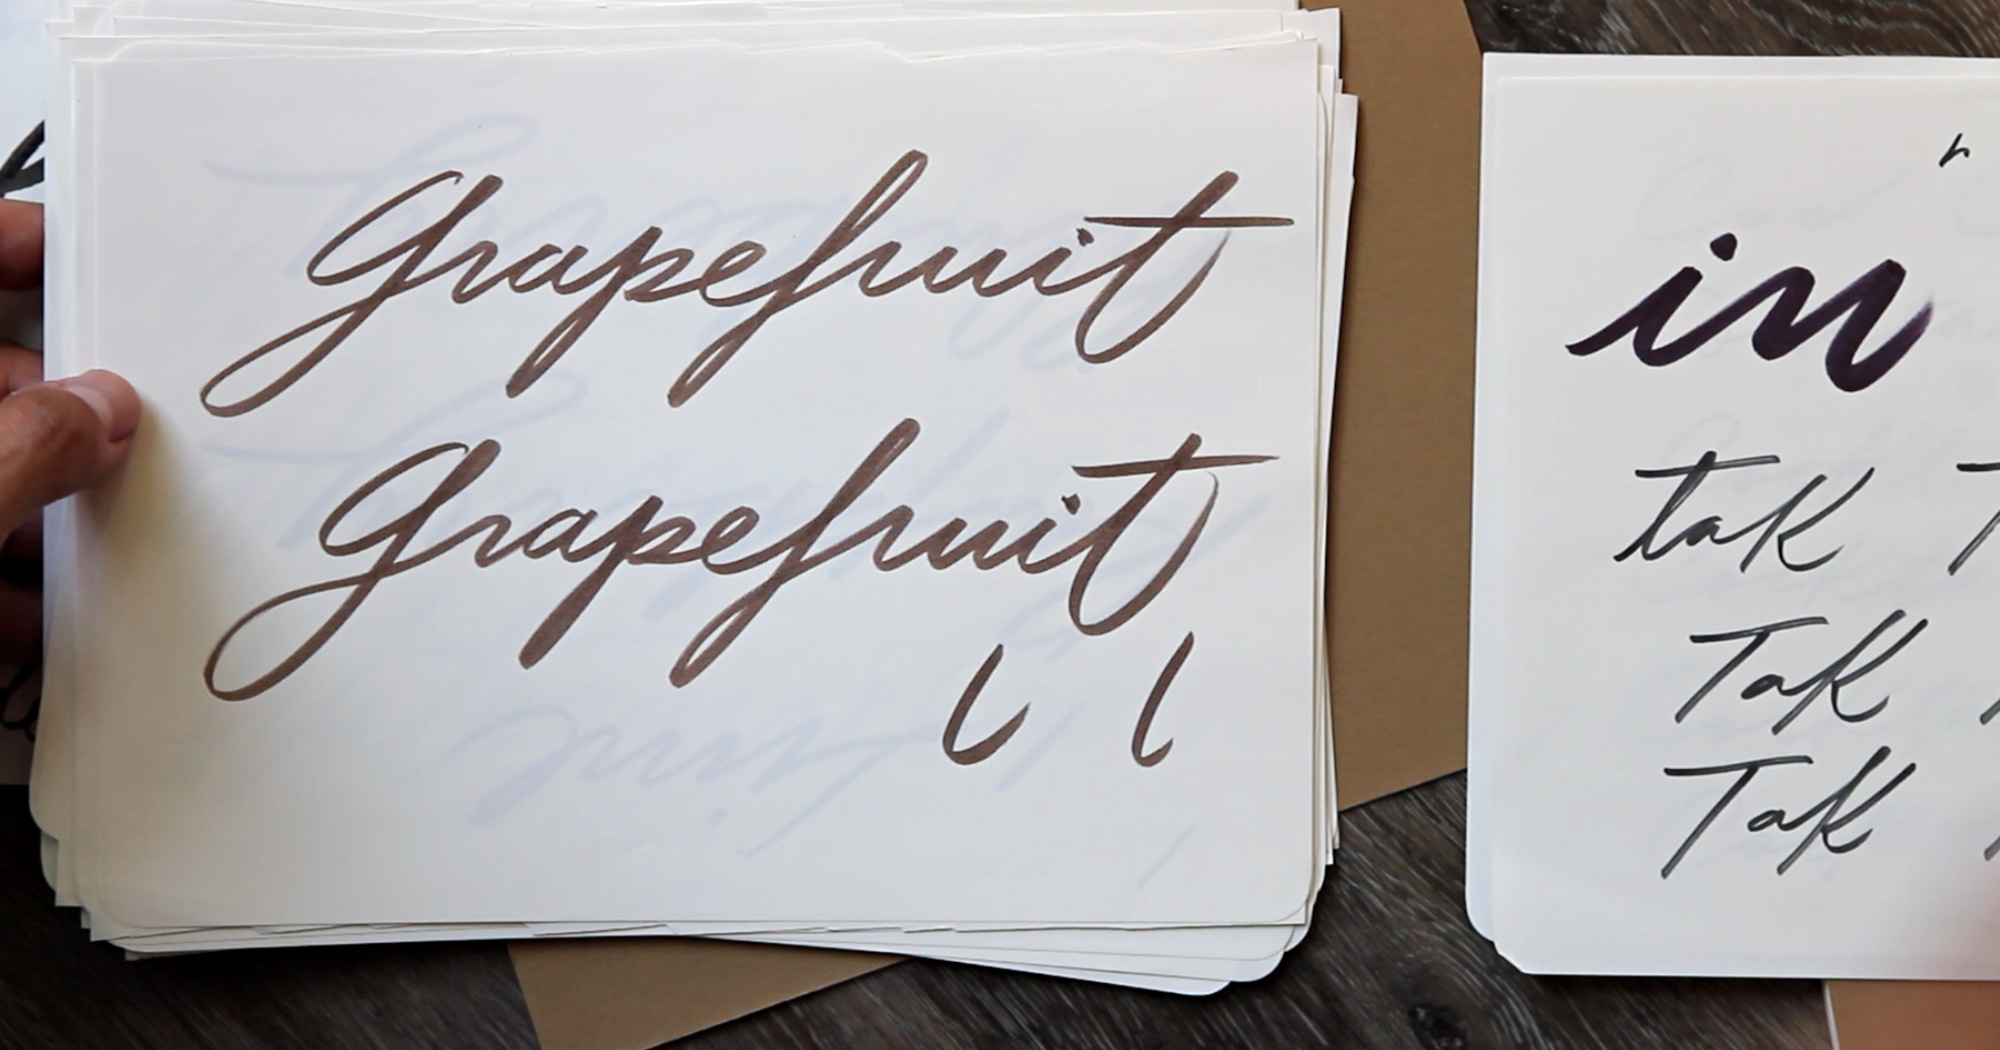 Grapefruit
Grapefruit
in
tak
Tak
Tak